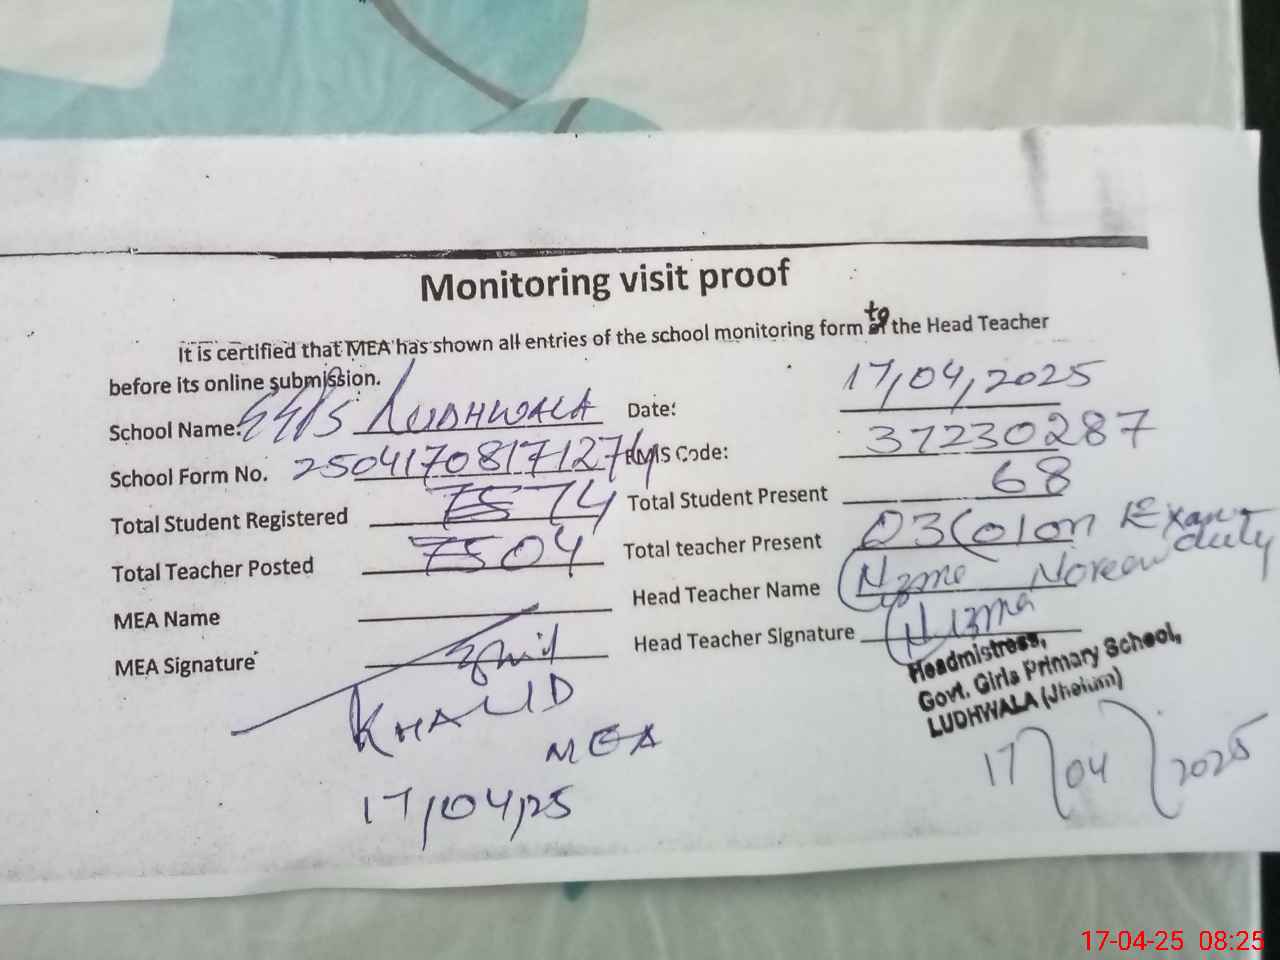 Monitoring visit proof
It is certified that MEA has shown all entries of the school monitoring form to the Head Teacher
before its online submission.
School Name: GGPS LUDHWALA Date: 17/04/2025
School Form No. 250417081712714 EMIS Code: 37230287
Total Student Registered 75 74 Total Student Present 68
Total Teacher Posted 75 04 Total teacher Present 03 (01 on Exam duty
MEA Name Head Teacher Name Nzma Noreen
MEA Signature Head Teacher Signature Nuzma
KHALID
MEA
17/04/25
Headmistress,
Govt. Girls Primary School,
LUDHWALA (Jhelum)
17/04/2025
17-04-25 08:25